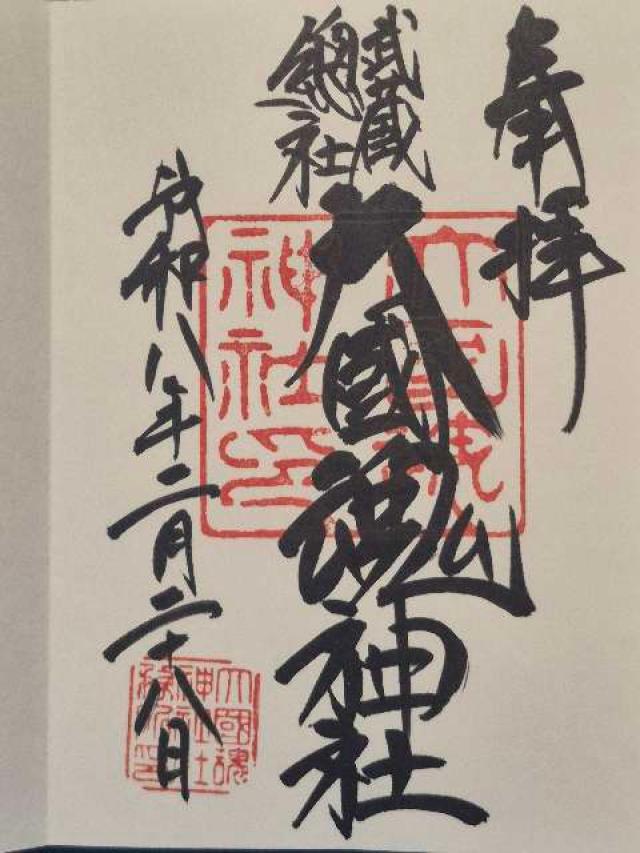 奉拝
武蔵
総社
大國魂神社
令和八年二月二十八日
大國魂
神社印
大國魂
神社